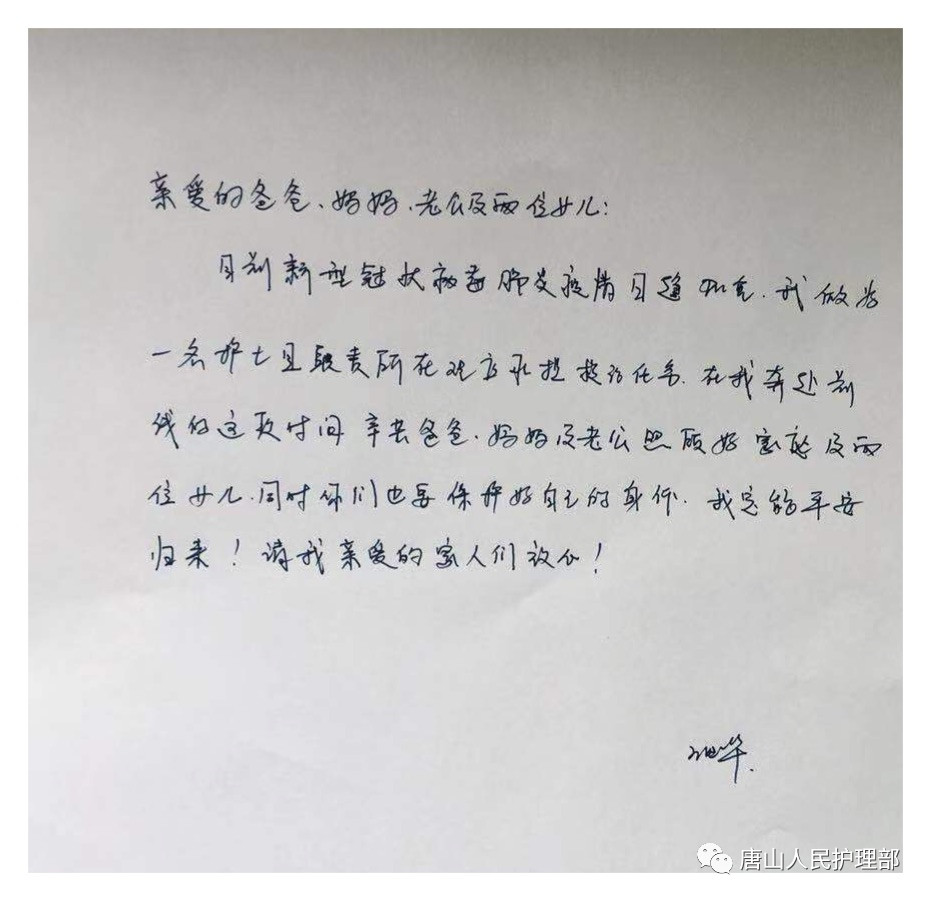 亲爱的爸爸、妈妈、老公及两位女儿:
目前新型冠状病毒肺炎疫情日趋加重,我做为
一名护士且职责所在理应承担救治任务.在我奔赴前
线的这段时间辛苦爸爸、妈妈及老公照顾好家庭及两
位女儿.同时你们也要保护好自己的身体.我定能平安
归来!请我亲爱的家人们放心!
华.
唐山人民护理部